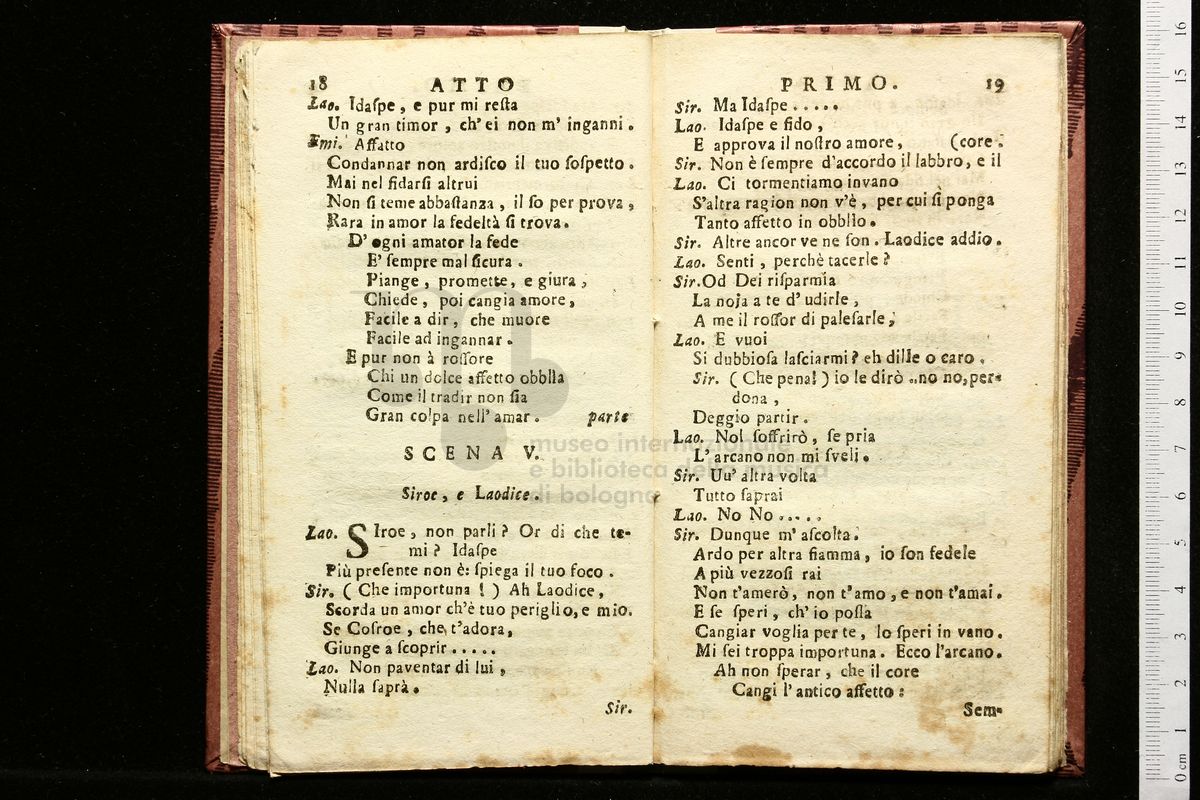 18 ATTO
Lao. Idaſpe, e pur mi reſta
Un gran timor, ch' ei non m' inganni.
Emi. Affatto
Condannar non ardiſco il tuo ſoſpetto.
Mai nel fidarſi altrui
Non ſi teme abbaſtanza, il ſo per prova,
Rara in amor la fedeltà ſi trova.
D' ogni amator la fede
E' ſempre mal ſicura.
Piange, promette, e giura,
Chiede, poi cangia amore,
Facile a dir, che muore
Facile ad ingannar.
E pur non à roſſore
Chi un dolce affetto obblìa
Come il tradir non ſia
Gran colpa nell' amar. parte
SCENA V.
Siroe, e Laodice.
Lao. SIroe, non parli? Or di che te-
mi? Idaſpe
Più preſente non è: ſpiega il tuo foco.
Sir. (Che importuna!) Ah Laodice,
Scorda un amor ch'è tuo periglio, e mio.
Se Coſroe, che t'adora,
Giunge a ſcoprir.....
Lao. Non paventar di lui,
Nulla ſaprà.
Sir.
PRIMO. 19
Sir. Ma Idaſpe.....
Lao. Idaſpe e fido,
E approva il noſtro amore, (core.
Sir. Non è ſempre d'accordo il labbro, e il
Lao. Ci tormentiamo invano
S'altra ragion non v'è, per cui ſi ponga
Tanto affetto in obblìo.
Sir. Altre ancor ve ne ſon. Laodice addio.
Lao. Senti, perchè tacerle?
Sir. Od Dei riſparmia
La noja a te d' udirle,
A me il roſſor di paleſarle,
Lao. E vuoi
Sì dubbioſa laſciarmi? eh dille o caro.
Sir. (Che pena!) io le dirò .. no no, per-
dona,
Deggio partir.
Lao. Nol ſoffrirò, ſe pria
L' arcano non mi ſveli.
Sir. Uu' altra volta
Tutto ſaprai
Lao. No No.....
Sir. Dunque m' aſcolta.
Ardo per altra fiamma, io ſon fedele
A più vezzoſi rai
Non t'amerò, non t'amo, e non t'amai.
E ſe ſperi, ch' io poſſa
Cangiar voglia per te, lo ſperi in vano.
Mi ſei troppa importuna. Ecco l'arcano.
Ah non ſperar, che il core
Cangi l' antico affetto:
Sem-
museo internazionale
e biblioteca della musica
di bologna
0 cm 1 2 3 4 5 6 7 8 9 10 11 12 13 14 15 16